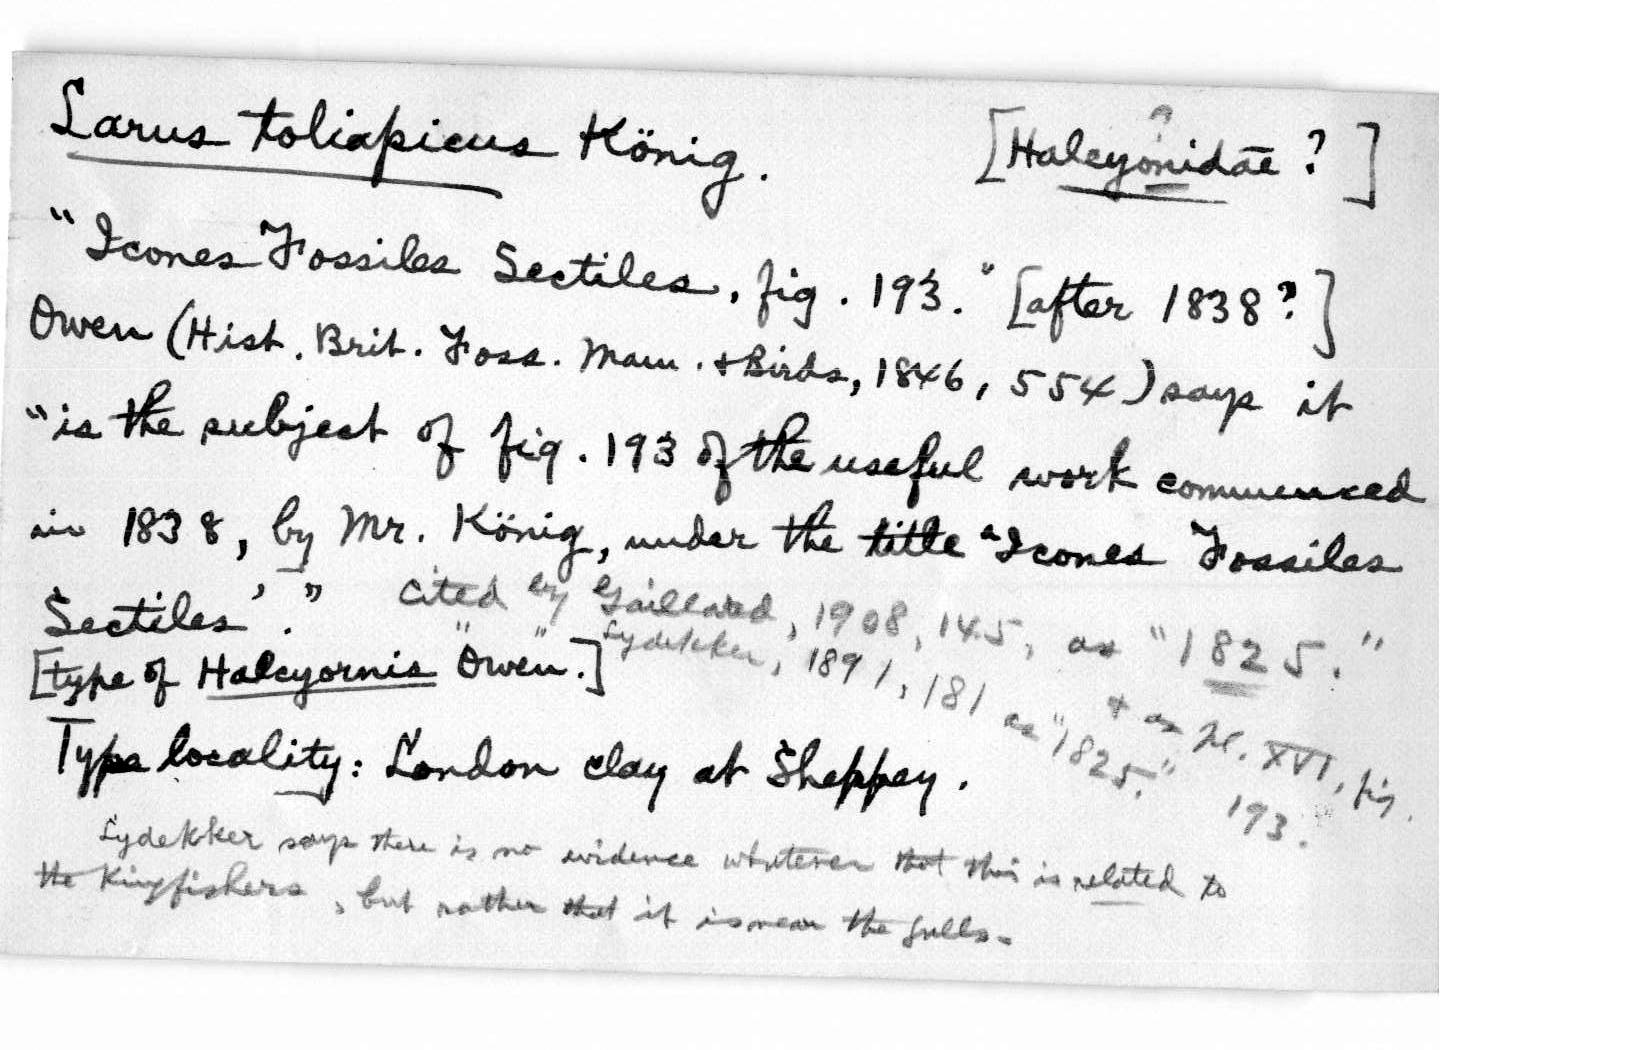 Larus toliapicus König. [Halcyonidae ?]
?
"Icones Fossiles Sectiles, fig. 193." [after 1838?]
Owen (Hist. Brit. Foss. Mam. + Birds, 1846, 554) says it
"is the subject of fig. 193 of the useful work commenced
in 1838, by Mr. König, under the title "Icones Fossiles
Sectiles'." Cited by Gaillard, 1908, 145, as "1825."
" " Lydekker, 1891, 181 as "1825." + as pl. XVI, fig. 193.
[type of Halcyornis Owen.]
Type locality: London clay at Sheppey.
Lydekker says there is no evidence whatever that this is related to
the Kingfishers, but rather that it is near the gulls.